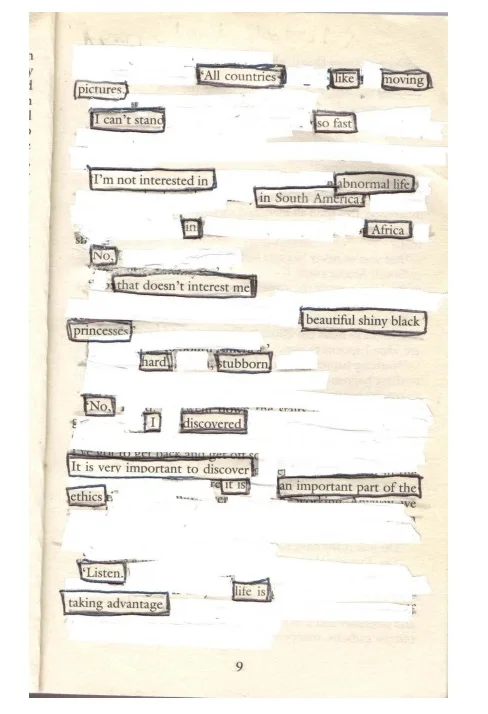 'All countries like moving
pictures.
I can't stand so fast
I'm not interested in abnormal life
in South America.
in Africa.
No.
that doesn't interest me
beautiful shiny black
princesses
hard, stubborn
'No, I discovered
It is very important to discover
it is an important part of the
ethics
'Listen.
life is
taking advantage
9